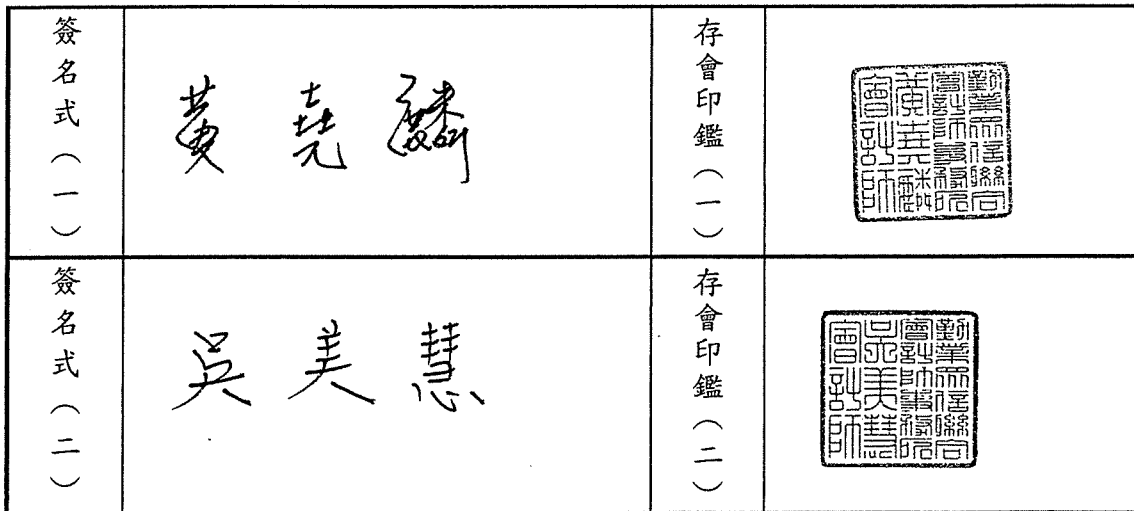 簽名式（一）
黃堯麟
存會印鑑（一）
勤業眾信聯合
會計師事務所
黃堯麟
會計師
簽名式（二）
吳美慧
存會印鑑（二）
勤業眾信聯合
會計師事務所
吳美慧
會計師